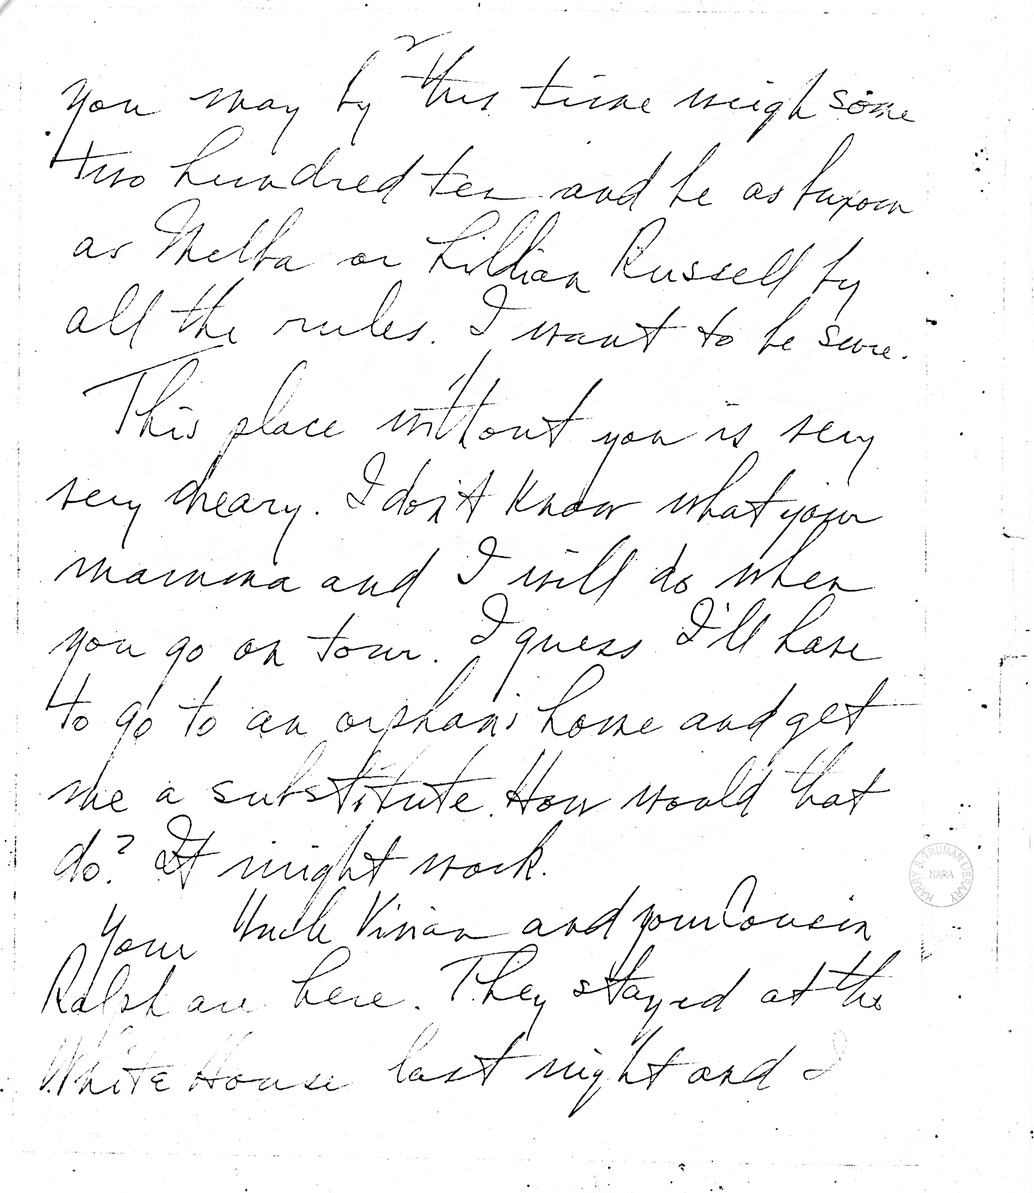 2
you may by this time weigh some
two hundred ten and be as buxom
as Melba or Lillian Russell by
all the rules. I want to be sure.
This place without you is very
very dreary. I don't know what your
mamma and I will do when
you go on tour. I guess I'll have
to go to an orphans home and get
me a substitute. How would that
do? It might work.
Your Uncle Vivian and your Cousin
Ralph are here. They stayed at the
White House last night and I
HARRY S. TRUMAN LIBRARY
NARA